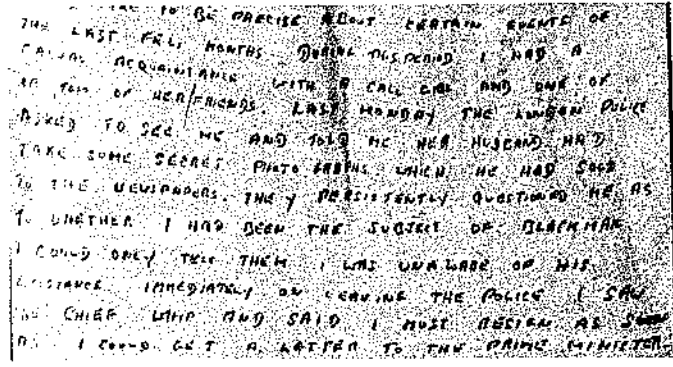 TO BE PRECISE ABOUT CERTAIN EVENTS OF
THE LAST FEW MONTHS. DURING THIS PERIOD I HAD A
CASUAL ACQUAINTANCE WITH A CALL GIRL AND ONE OF
OF HER FRIENDS. LAST MONDAY THE LONDON POLICE
ASKED TO SEE ME AND TOLD ME HER HUSBAND HAD
TAKE SOME SECRET PHOTO GRAPHS WHICH HE HAD SOLD
TO THE NEWSPAPERS. THEY PERSISTENTLY QUESTIONED ME AS
TO WHETHER I HAD BEEN THE SUBJECT OF BLACKMAIL
I COULD ONLY TELL THEM I WAS UNAWARE OF HIS
EXISTANCE IMMEDIATELY ON LEAVING THE POLICE I SAW
THE CHIEF WHIP AND SAID I MUST RESIGN AS SOON
AS I COULD GET A LETTER TO THE PRIME MINISTER